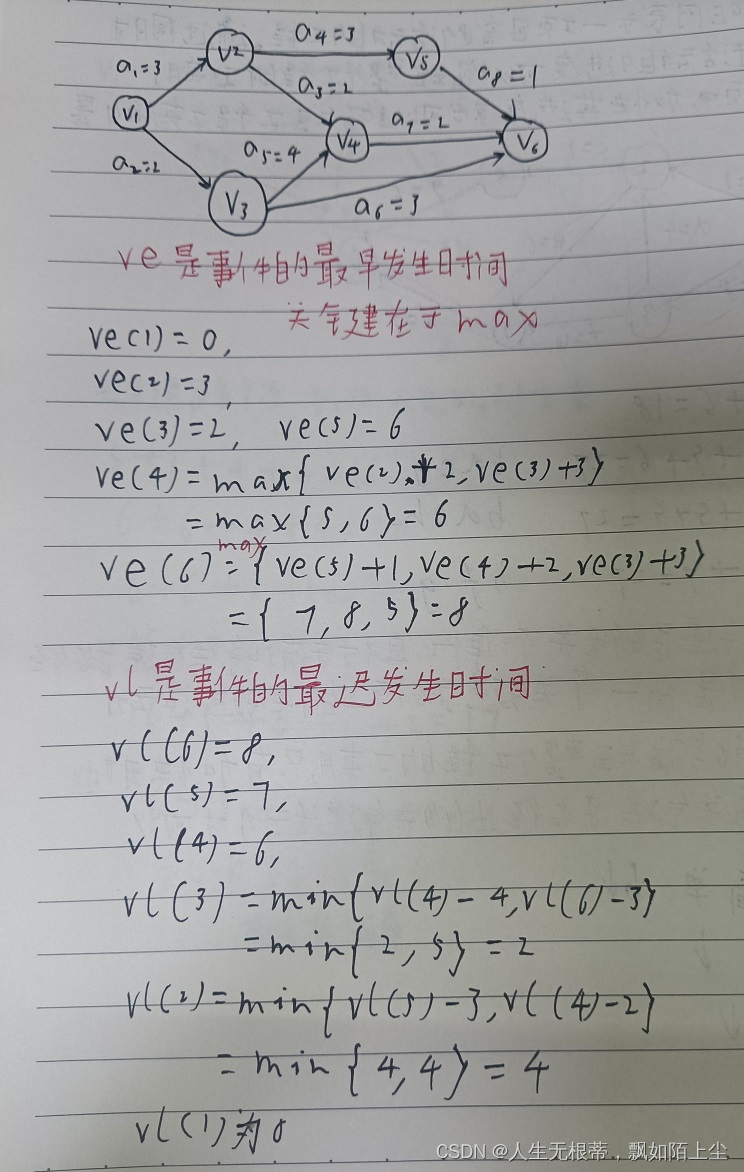 a₄=3
V2
V5
a₁=3
a₃=2
a₈=1
V1
a₇=2
a₅=4
V4
V6
a₂=2
V3
a₆=3
ve是事件的最早发生时间
关键在于max
ve(1)=0,
ve(2)=3,
ve(3)=2, ve(5)=6
ve(4)=max{ve(2)+2,ve(3)+3}
=max{5,6}=6
max
ve(6)={ve(5)+1,ve(4)+2,ve(3)+3}
={7,8,5}=8
vl是事件的最迟发生时间
vl(6)=8,
vl(5)=7,
vl(4)=6,
vl(3)=min{vl(4)-4,vl(6)-3}
=min{2,5}=2
vl(2)=min{vl(5)-3,vl(4)-2}
=min{4,4}=4
vl(1)为0
CSDN @人生无根蒂，飘如陌上尘